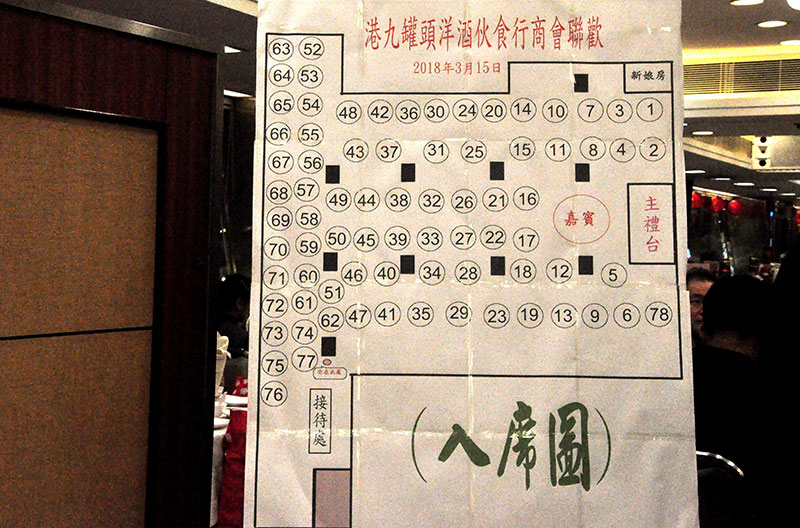 港九罐頭洋酒伙食行商會聯歡
2018年3月15日
新娘房
63 52
64 53
65 54
48 42 36 30 24 20 14 10 7 3 1
66 55
43 37 31 25 15 11 8 4 2
67 56
68 57
49 44 38 32 26 21 16
嘉賓
主禮台
69 58
50 45 39 33 27 22 17
70 59
71 60
46 40 34 28 18 12 5
72 61 51
62 47 41 35 29 23 19 13 9 6 78
73 74
75 77
你在此處
76
接待處
(入席圖)